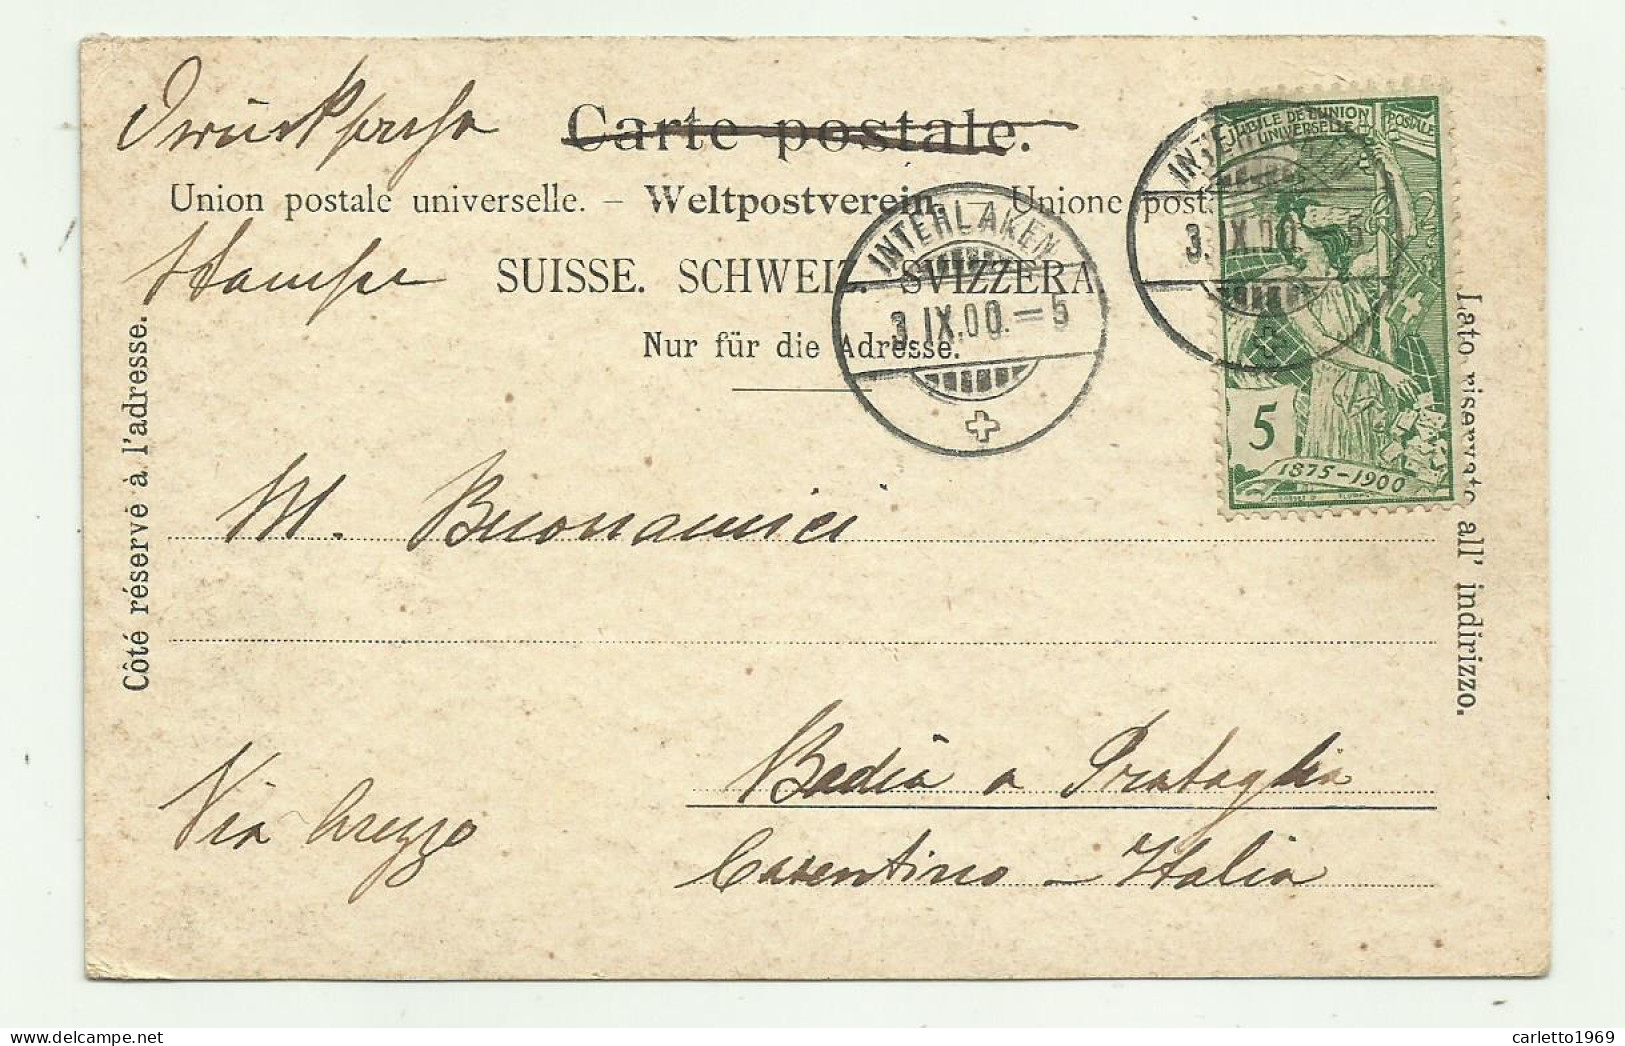 Drucksache
Carte postale.
Union postale universelle. – Weltpostverein. – Unione post
Stampe
SUISSE. SCHWEIZ. SVIZZERA
Nur für die Adresse.
INTERLAKEN
3.IX.00.–5
INTERLAKEN
3.IX.00.–5
JUBILÉ DE L'UNION
POSTALE
UNIVERSELLE
5
1875-1900
Côté réservé à l'adresse.
Lato riservato all' indirizzo.
M. Buonamici
Badia a Prataglia
Via Arezzo
Casentino - Italia
carletto1969